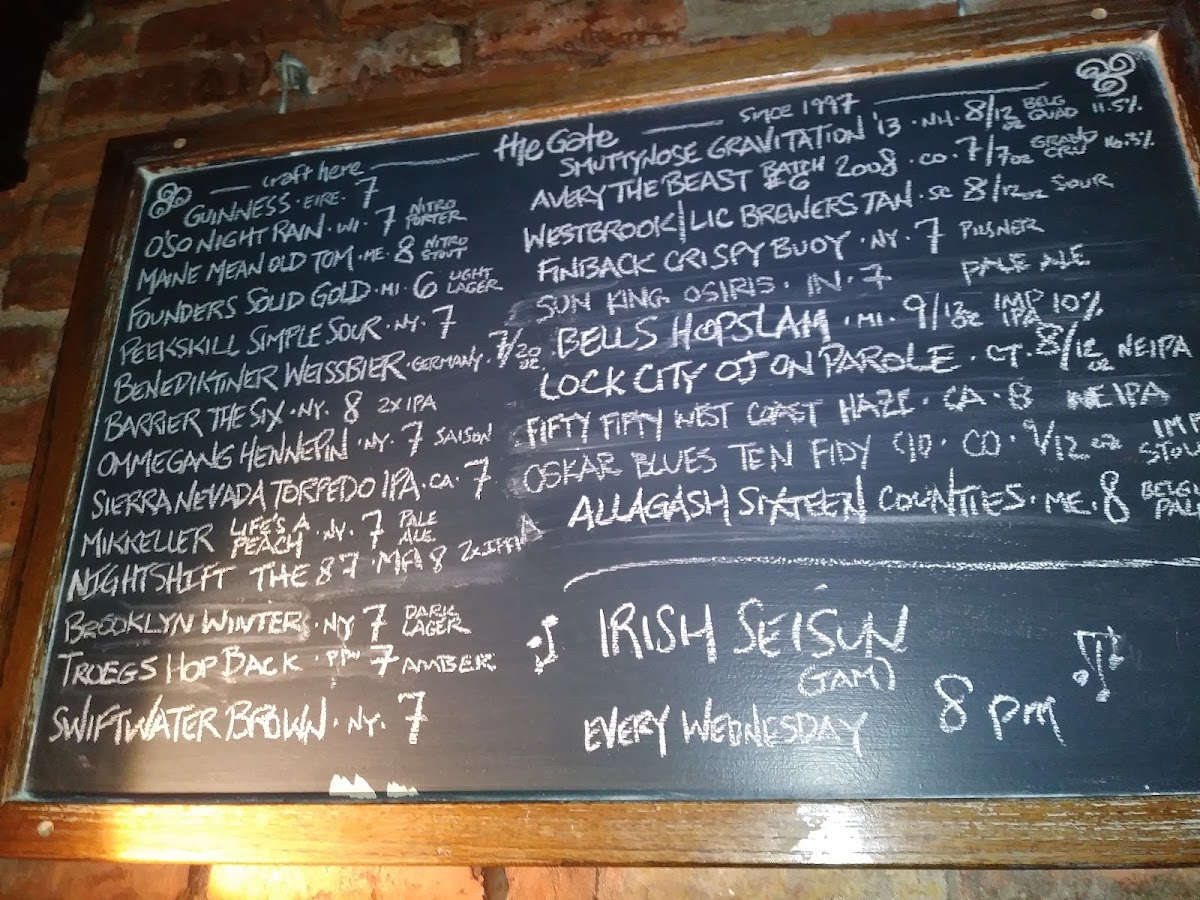 craft here
the Gate
SINCE 1997
GUINNESS · EIRE · 7
O'SO NIGHT RAIN · WI · 7 NITRO PORTER
MAINE MEAN OLD TOM · ME · 8 NITRO STOUT
FOUNDERS SOLID GOLD · MI · 6 LIGHT LAGER
PEEKSKILL SIMPLE SOUR · NY · 7
BENEDIKTINER WEISSBIER · GERMANY · 7/20 OZ
BARRIER THE SIX · NY · 8 2X IPA
OMMEGANG HENNEPIN · NY · 7 SAISON
SIERRA NEVADA TORPEDO IPA · CA · 7
MIKKELLER LIFE'S A PEACH · NY · 7 PALE ALE
NIGHTSHIFT THE 87 · MA 8 2X IPA
BROOKLYN WINTER · NY 7 DARK LAGER
TROEGS HOP BACK · 7 AMBER
SWIFTWATER BROWN · NY · 7
SMUTTYNOSE GRAVITATION '13 · NH · 8/12 OZ BELG QUAD 11.5%
AVERY THE BEAST BATCH #6 2008 · CO · 7/7 OZ GRAND CRU
WESTBROOK | LIC BREWERS TAN · SC 8/12 OZ SOUR
FINBACK CRISPY BUOY · NY · 7 PILSNER
SUN KING OSIRIS · IN · 7 PALE ALE
BELLS HOPSLAM · MI · 9/12 OZ IMP IPA 10%
LOCK CITY OJ ON PAROLE · CT · 8/12 OZ NEIPA
FIFTY FIFTY WEST COAST HAZE · CA · 8 NEIPA
OSKAR BLUES TEN FIDY · CO · 9/12 OZ IMP STOU
ALLAGASH SIXTEEN COUNTIES · ME · 8 BELGI PAL
IRISH SEISUN
(JAM)
EVERY WEDNESDAY 8 PM